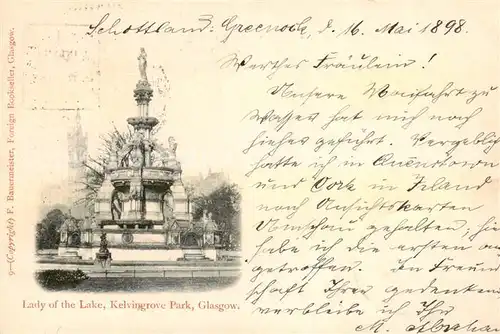 Schottland: Greenock, d. 16. Mai 1898.
Werthes Fräulein!
Unsere Maifahrt zu
Wasser hat mich nach
hieher geführt. Vergeblich
hatte ich in Queenstown
und Cork in Irland
nach Ansichtskarten
Umschau gehalten; hier
habe ich die ersten an-
getroffen. In Freund-
schaft Ihrer gedenkend
verbleibe ich Ihr
M.
9—(Copyright) F. Bauermeister, Foreign Bookseller, Glasgow.
Lady of the Lake, Kelvingrove Park, Glasgow.